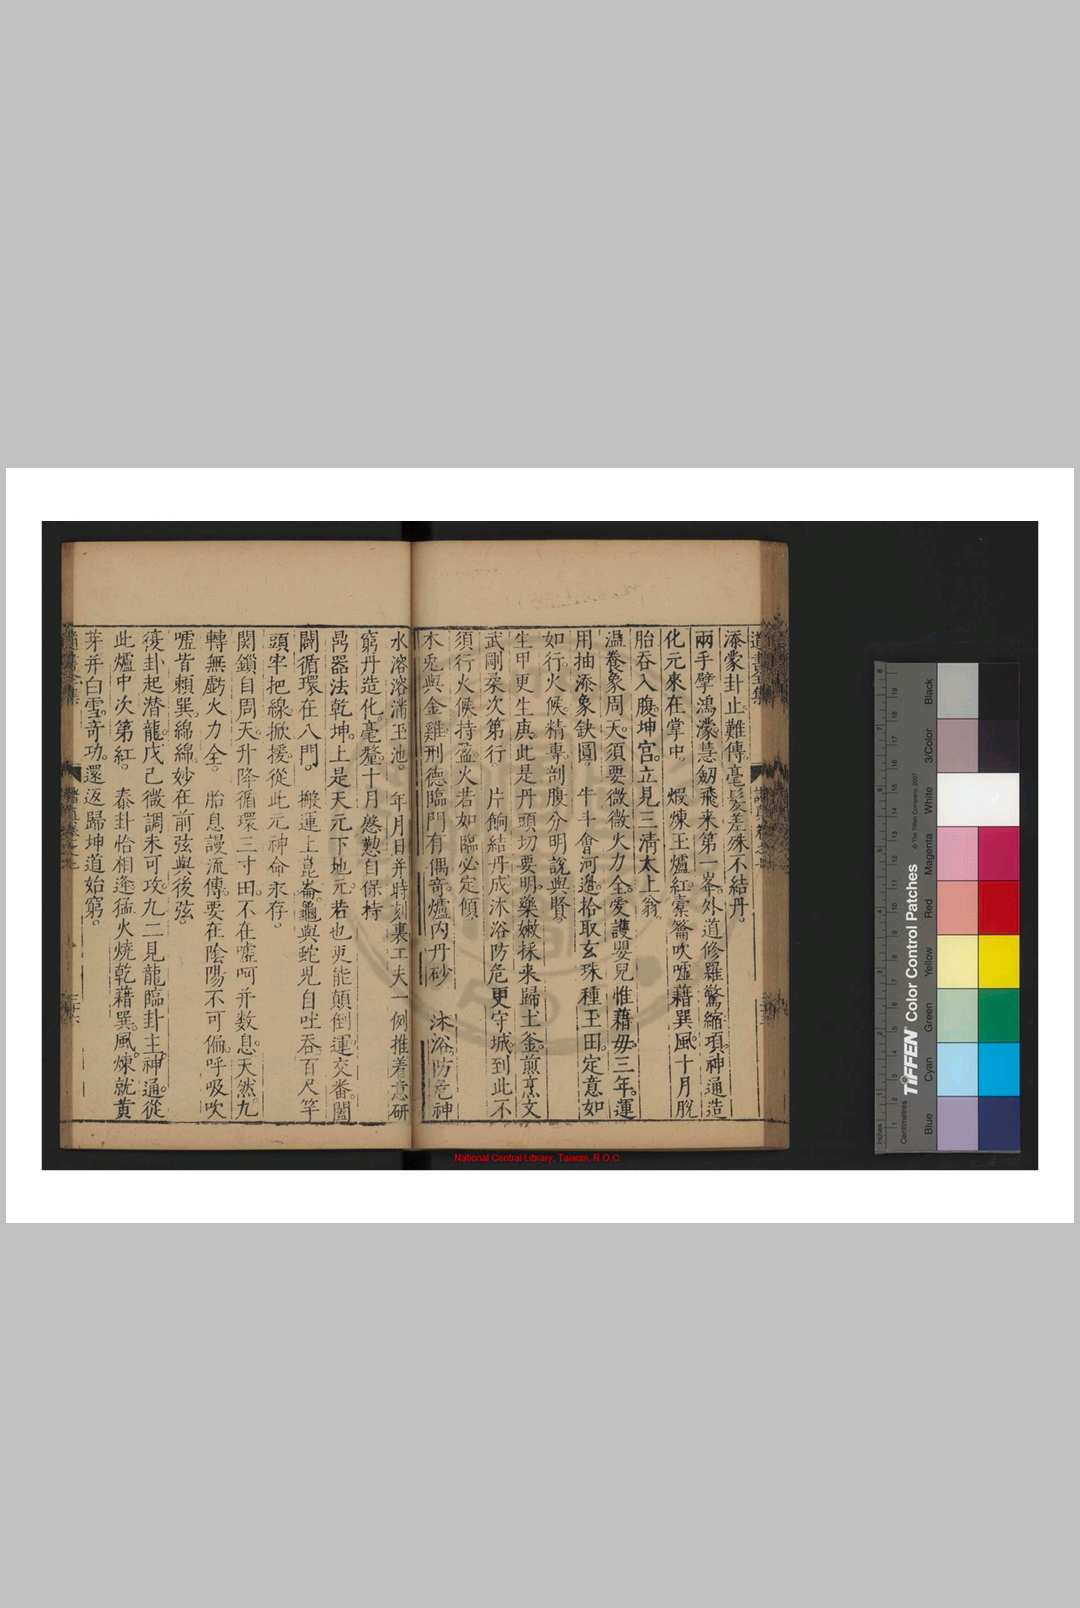 添蒙卦止難傳毫髮差殊不結丹。
兩手擘鴻濛慧劒飛來第一峯外道修羅驚縮項神通造
化元來在掌中。 煆煉玉爐紅橐籥吹噓藉巽風十月脫
胎吞入腹坤宮立見三清太上翁
溫養象周天須要微微火力全愛護嬰兒惟藉母三年運
用抽添象缺圓。 牛斗會河邊拾取玄珠種玉田定意如
如行火候精專剖腹分明說與賢
生甲更生庚此是丹頭切要明藥嫩採來歸土釜煎烹文
武剛柔次第行 片餉結丹成沐浴防危更守城到此不
須行火候持盈火若如臨必定傾
木兎與金雞刑德臨門有偶奇爐內丹砂 沐浴防危神
水溶溶滿玉池。 年月日并時刻裏工夫一例推着意研
窮丹造化毫釐十月慇懃自保持
鼎器法乾坤上是天元下地元若也更能顛倒運交番闔
闢循環在八門。 搬運上崑崙龜與蛇兒自吐吞百尺竿
頭牢把線掀援從此元神命永存。
関鎖自周天升降循環三寸田不在噓呵并数息天然九
轉無虧火力全。 胎息謾流傳要在陰陽不可偏呼吸吹
噓皆賴巽綿綿妙在前弦與後弦。
復卦起潜龍戊己微調未可攻九二見龍臨卦主神通從
此爐中次第紅。 泰卦恰相逢猛火燒乾藉巽風煉就黄
芽并白雪奇功還返歸坤道始窮。
National Central Library, Taiwan, R.O.C
TIFFEN Color Control Patches
© The Tiffen Company, 2007
Inches
Centimetres
Blue
Cyan
Green
Yellow
Red
Magenta
White
3/Color
Black